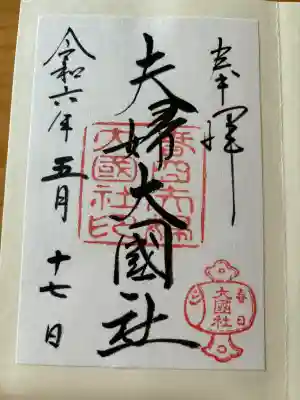 奉拝
夫婦大國社
春日夫婦
大國社印
春日
大國社
令和六年五月十七日